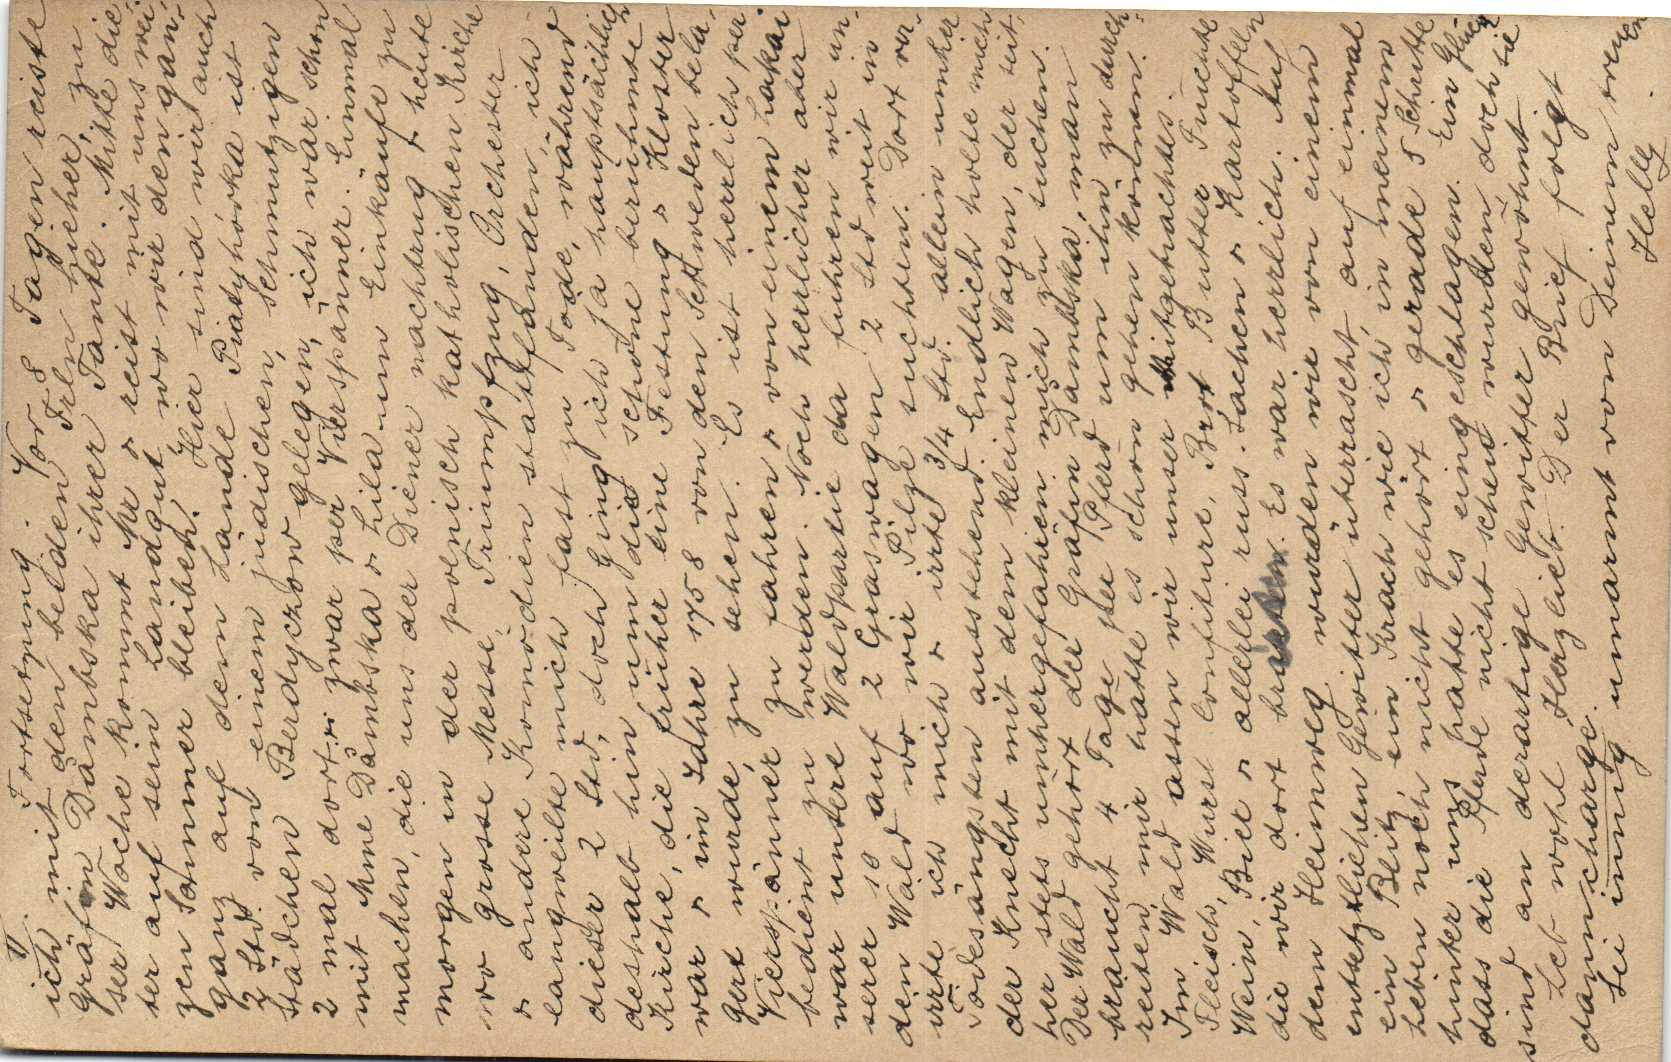 II. Fortsetzung. Vor 8 Tagen reiste
ich mit den beiden Frln hieher, zu
Gräfin Dambska ihrer Tante. Mitte die-
ser Woche kommt Mr & reist mit uns wei-
ter auf sein Landgut wo wir den gan-
zen Sommer bleiben. Hier sind wir auch
ganz auf dem Lande Piatyhorka ist
2 Std. von einem jüdischen, schmutzigen
Städchen Berdyczow gelegen, ich war schon
2 mal dort & zwar per Vierspänner. Einmal
mit Mme Dambska & Lila um Einkäufe zu
machen, die uns der Diener nachtrug & heute
morgen in der polnisch katholischen Kirche
wo grosse Messe, Triumpfzug, Orchester
& andere Komödien stattfanden, ich
langweilte mich fast zu Tode, während
dieser 2 Std, doch ging ich ja hauptsächlich
deshalb hin um die schöne berühmte
Kirche, die früher eine Festung & Kloster
war & im Jahre 1758 von den Schweden bela-
gert wurde, zu sehen. Es ist herrlich per
Vierspänner zu fahren & von einem Lakai
bedient zu werden. Noch herrlicher aber
war unsere Waldpartie da fuhren wir un-
serer 10 auf 2 Graswagen 2 Std weit in
den Wald wo wir Pilze suchten. Dort ver-
irrte ich mich & irrte 3/4 Std. allein umher
Todesängsten ausstehend. Endlich holte mich
der Knecht mit dem kleinen Wagen, der seit-
her stets umhergefahren mich zu suchen.
Der Wald gehört der Gräfin Dambska, man
braucht 4 Tage per Pferd um ihn zu durch-
reiten, mir hätte es schön gehen können.
Im Wald assen wir unser mitgebrachtes
Fleisch, Wurst Confiture, Brot Butter Früchte
Wein, Bier & allerlei russ. Sachen & Kartoffeln
die wir dort brateten. Es war herrlich. Auf
dem Heimweg wurden wir von einem
entsetzlichen Gewitter überrascht, auf einmal
ein Blitz, ein Krach wie ich in meinem
Leben noch nicht gehört & gerade 5 Schritte
hinter uns hatte es eingeschlagen. Ein Glück
dass die Pferde nicht scheu wurden, doch sie
sind an derartige Gewitter gewöhnt
Leb wohl Herzlieb. Der Brief folgt
damicharge.
Sei innig umarmt von Deinem treuen
Helly.